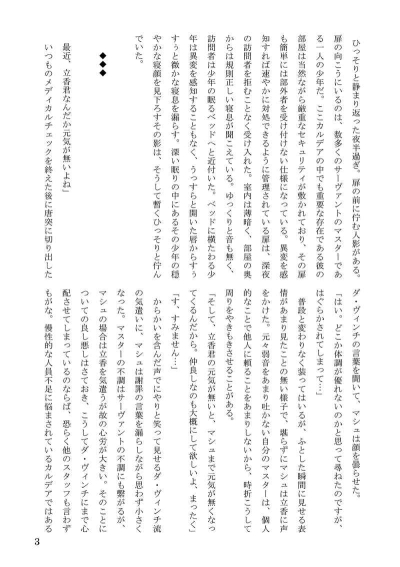 ひっそりと静まり返った夜半過ぎ。扉の前に佇む人影がある。
扉の向こうにいるのは、数多くのサーヴァントのマスターであ
る一人の少年だ。ここカルデアの中でも重要な存在である彼の
部屋は当然ながら厳重なセキュリティが敷かれており、その扉
も簡単には部外者を受け付けない仕様になっている。異変を感
知すれば速やかに対処できるように管理されている扉は、深夜
の訪問者を拒むことなく受け入れた。室内は薄暗く、部屋の奥
からは規則正しい寝息が聞こえている。ゆっくりと音も無く、
訪問者は少年の眠るベッドへと近付いた。ベッドに横たわる少
年は異変を感知することもなく、うっすらと開いた唇からすう
すぅと微かな寝息を漏らす。深い眠りの中にあるその少年の穏
やかな寝顔を見下ろすその影は、そうして暫くひっそりと佇ん
でいた。
◆◆◆
最近、立香君なんだか元気が無いよね」
いつものメディカルチェックを終えた後に唐突に切り出した
ダ・ヴィンチの言葉を聞いて、マシュは顔を曇らせた。
「はい。どこか体調が優れないのかと思って尋ねたのですが、
はぐらかされてしまって…」
普段と変わりなく装ってはいるが、ふとした瞬間に見せる表
情があまり見たことの無い様子で、堪らずにマシュは立香に声
をかけた。元々弱音をあまり吐かない自分のマスターは、個人
的なことで他人に頼ることをあまりしないから、時折こうして
周りをやきもきさせることがある。
「そして、立香君の元気が無いと、マシュまで元気が無くなっ
てくるんだから、仲良しなのも大概にして欲しいよ、まったく」
「す、すみません…」
からかいを含んだ声でにやりと笑って見せるダ・ヴィンチ流
の気遣いに、マシュは謝罪の言葉を漏らしながら思わず小さく
なった。マスターの不調はサーヴァントの不調にも繋がるが、
マシュの場合は立香を気遣うが故の心労が大きい。そのことに
ついての良し悪しはさておき、こうしてダ・ヴィンチにまで心
配させてしまっているのならば、恐らく他のスタッフも言わず
もがな。慢性的な人員不足に悩まされているカルデアではある
3